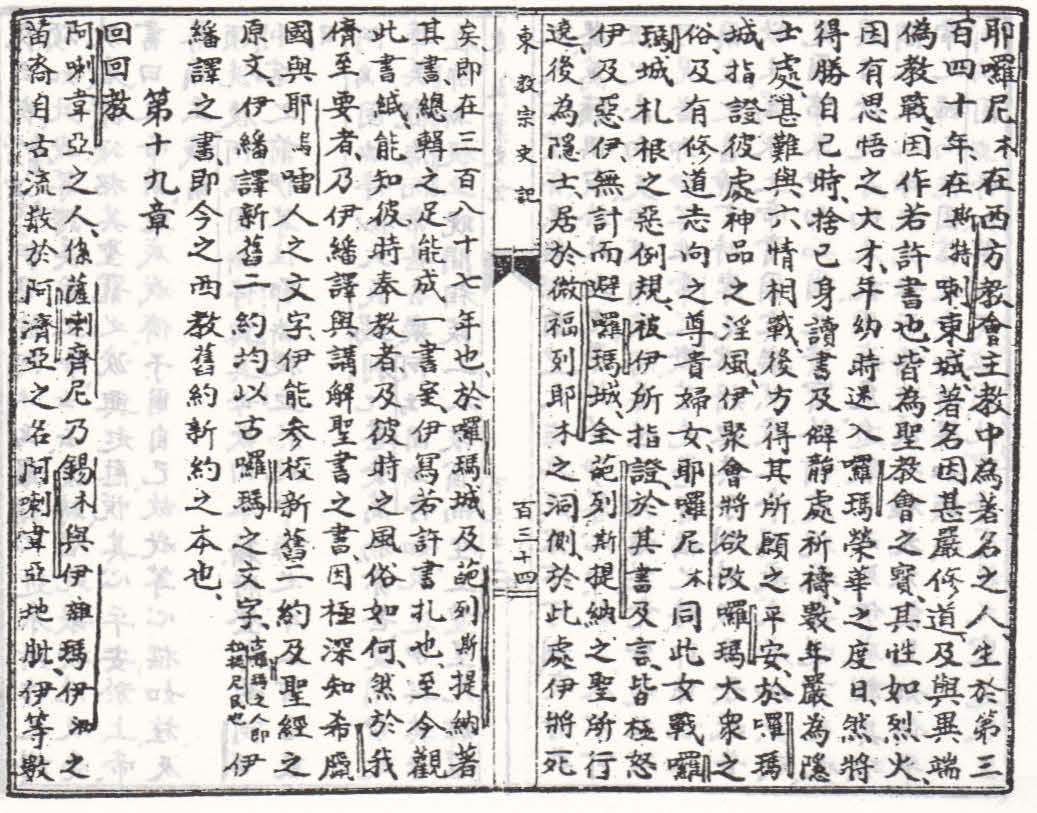 耶囉尼木在西方教會主教中為著名之人、生於第三
百四十年、在斯特唎東城、著名因甚嚴修道、及與異端
偽教戰、因作若許書也、皆為聖教會之寶、其性如烈火、
因有思悟之大才、年幼時遂入囉瑪榮華之度日、然將
得勝自己時、捨己身讀書及僻靜處祈禱、數年嚴為隱
士處、甚難與六情相戰後方得其所願之平安、於囉瑪
城、指證彼處神品之淫風、伊聚會將欲改囉瑪大衆之
俗及有修道志向之尊貴婦女、耶囉尼木同此女戰囉
瑪城札根之惡例規、被伊所指證、於其書及言、皆極怒
伊及惡伊、無計而避囉瑪城、全葩列斯提納之聖所行
遶、後為隱士、居於微福列耶木之洞側、於此處伊將死
東教宗史記
百三十四
矣、即在三百八十七年也、於囉瑪城及葩列斯提納著
其書、總輯之足能成一書室、伊寫若許書札也、至今觀
此書紙、能知彼時奉教者、及彼時之風俗如何、然於我
儕至要者、乃伊繙譯與講解聖書之書因極深知希臘
國與耶烏噹人之文字、伊能參校新舊二約及聖經之
原文、伊繙譯新舊二約均以古囉瑪之文字、古囉瑪之人即拉提尼民也伊
繙譯之書、即今之西教舊約新約之本也、
第十九章
回回教
阿喇韋亞之人、係薩喇齊尼乃錫木與伊雜瑪伊泐之
苗裔自古流散於阿濟亞之名阿喇韋亞地肚伊等數